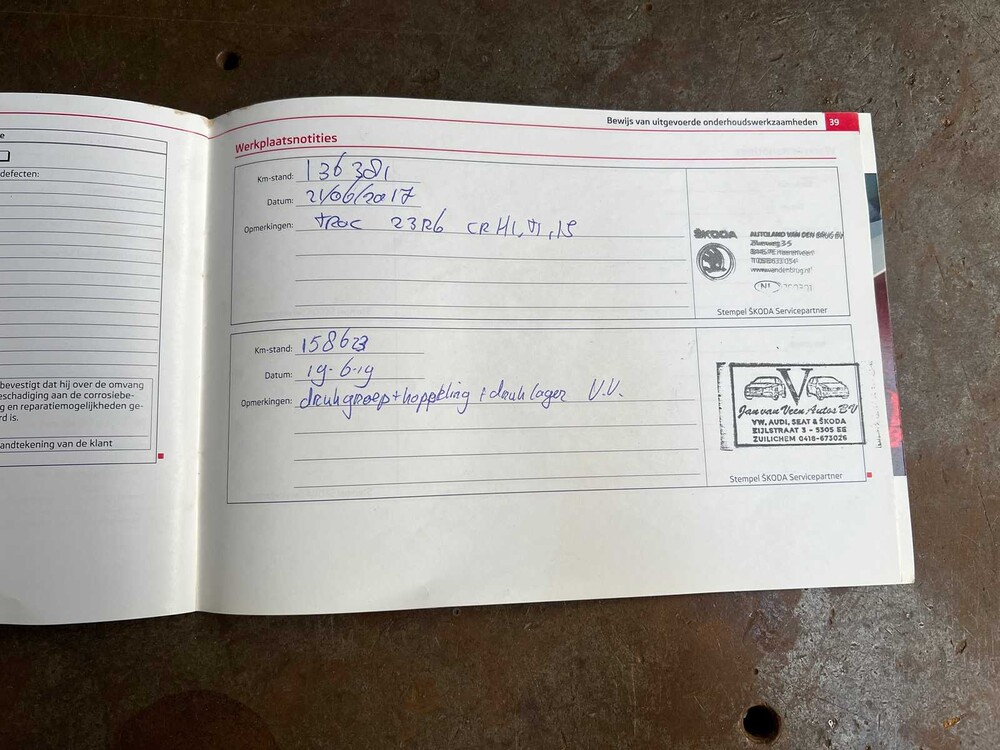 e
defecten:
bevestigt dat hij over de omvang
eschadiging aan de corrosiebe-
g en reparatiemogelijkheden ge-
rd is.
andtekening van de klant
Bewijs van uitgevoerde onderhoudswerkzaamheden 39
Werkplaatsnotities
Km-stand: 136 381
Datum: 21/06/2017
Opmerkingen: 23R6
ŠKODA AUTOLAND VAN DEN BRUG BV
www.vandenbrug.nl
NL
Stempel ŠKODA Servicepartner
Km-stand: 158623
Datum: 19-6-19
Opmerkingen: drukgroep + koppeling + druklager V.V.
V
Jan van Veen Autos BV
VW, AUDI, SEAT & ŠKODA
ZIJLSTRAAT 3 - 5305 EE
ZUILICHEM 0418-673026
Stempel ŠKODA Servicepartner